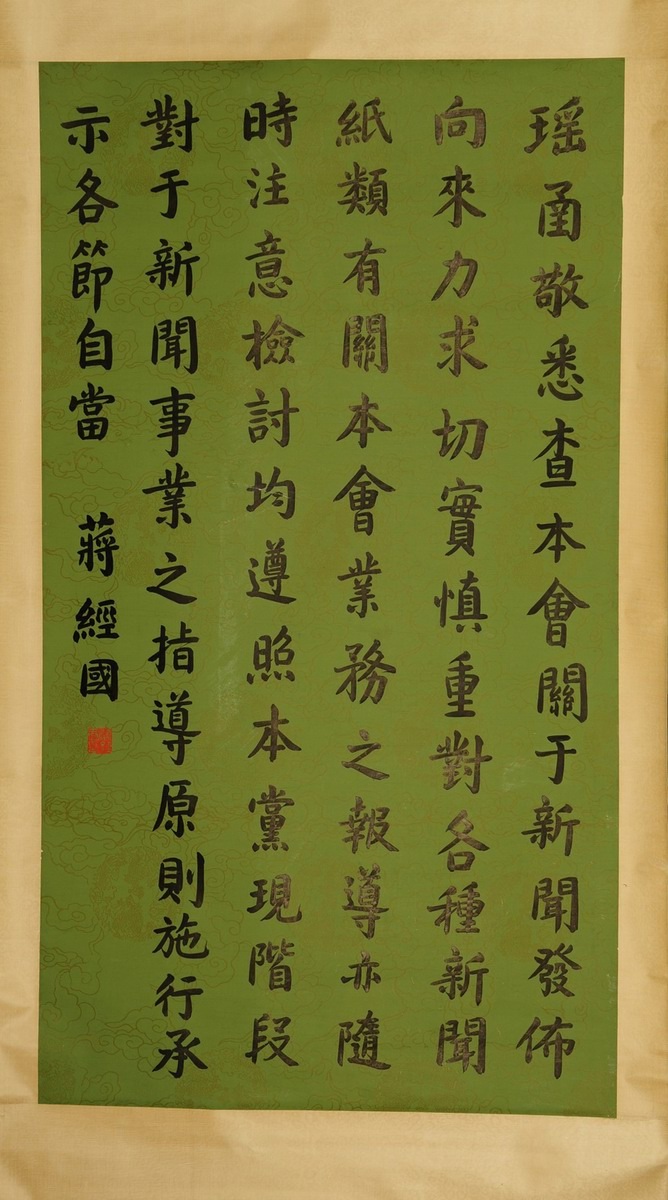 瑶函敬悉查本會關于新聞發佈
向來力求切實慎重對各種新聞
紙類有關本會業務之報導亦隨
時注意檢討均遵照本黨現階段
對于新聞事業之指導原則施行承
示各節自當 蔣經國